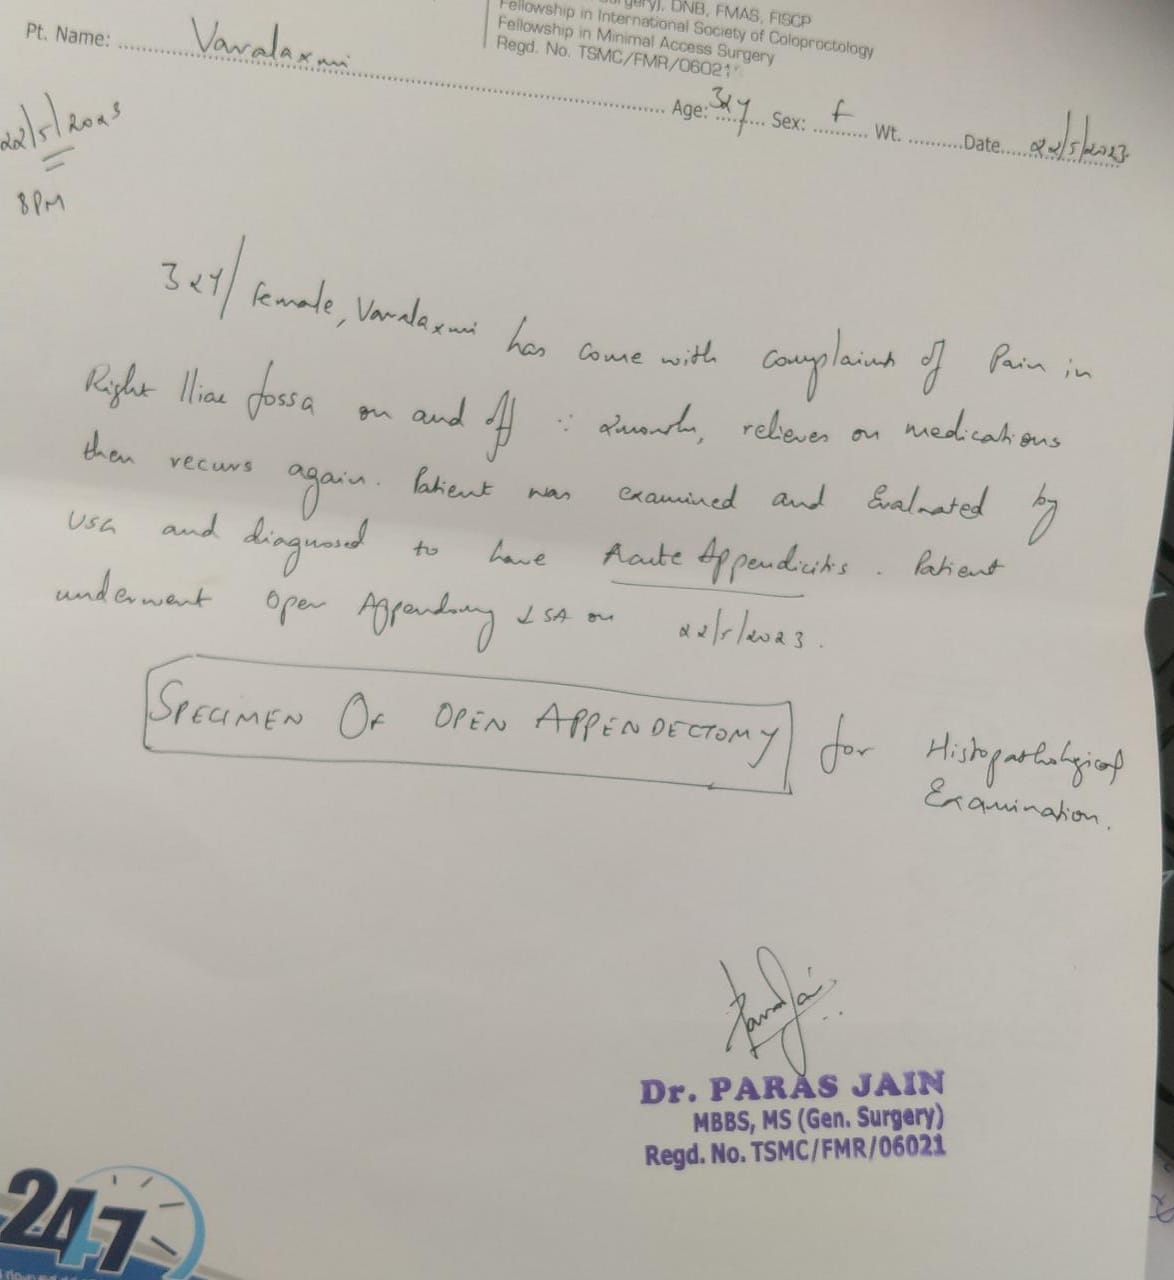 DNB, FMAS, FISCP
Fellowship in International Society of Coloproctology
Fellowship in Minimal Access Surgery
Regd. No. TSMC/FMR/06021
Pt. Name: Varalaxmi
Age: 32y Sex: f Wt. Date 22/5/2023
22/5/2023
8PM
32Y/Female, Varalaxmi has come with complaints of Pain in
Right Iliac fossa on and off 2months, relieves on medications
then recurs again. Patient was examined and Evaluated by
USG and diagnosed to have Acute Appendicitis. Patient
underwent Open SA on 22/5/2023.
SPECIMEN OF OPEN APPENDECTOMY for Histopathological
Examination.
Dr. PARAS JAIN
MBBS, MS (Gen. Surgery)
Regd. No. TSMC/FMR/06021
247